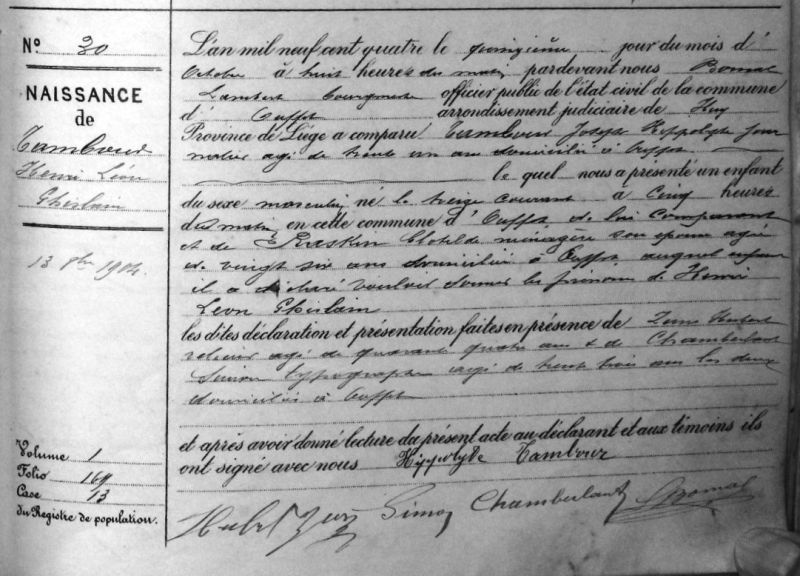 N° 30
NAISSANCE
de
Tambour
Henri Léon
Ghislain
13 8bre 1904.
Volume 1
Folio 169
Case 13
du Registre de population.
L'an mil neuf cent quatre le quinzième jour du mois d'
Octobre à huit heures du matin, pardevant nous Bomal
Lambert bourgmestre officier public de l'état civil de la commune
d' Ouffet arrondissement judiciaire de Huy
Province de Liége a comparu Tambour Joseph Hippolyte jour
nalier agé de trente un ans domicilié à Ouffet
le quel nous a présenté un enfant
du sexe masculin né le treize courant à cinq heures
du matin en cette commune d' Ouffet de lui comparant
et de Raskin Clotilde ménagère son épouse agée
de vingt six ans domiciliée à Ouffet auquel enfant
il a déclaré vouloir donner les prénoms de Henri
Léon Ghislain
les dites déclaration et présentation faites en présence de Hubert
relieur agé de quarante quatre ans & de Chamberlant
Simon typographe agé de trente trois ans les deux
domiciliés à Ouffet
et après avoir donné lecture du présent acte au déclarant et aux témoins ils
ont signé avec nous Hippolyte Tambour
Hubert Simon Chamberlant Bomal